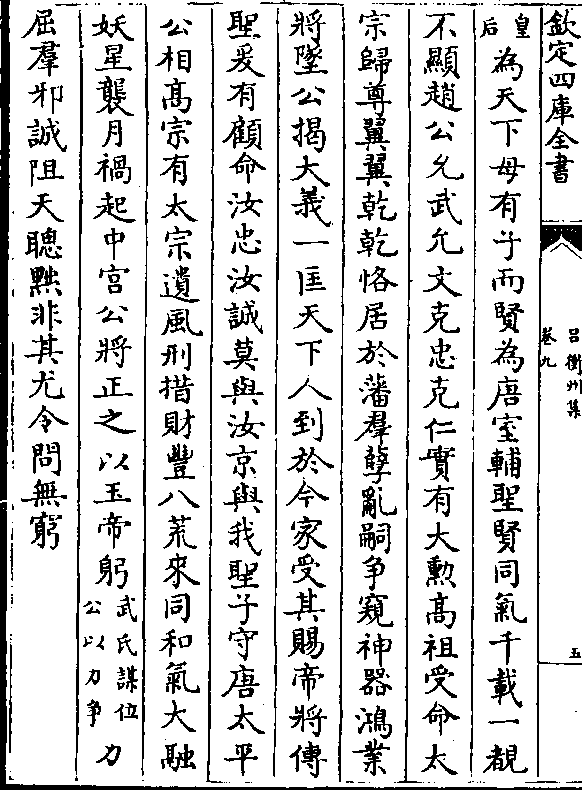 欽定四庫全書
呂衡州集
卷九
五
皇后為天下母有子而賢為唐室輔聖賢同氣千載一覩
不顯趙公允武允文克忠克仁實有大勲高祖受命太
宗歸尊翼翼乾乾恪居於藩羣孽亂嗣争窺神器鴻業
將墜公揭大義一匡天下人到於今家受其賜帝將傳
聖爰有顧命汝忠汝誠莫與汝京與我聖子守唐太平
公相髙宗有太宗遺風刑措財豐八荒來同和氣大融
妖星襲月禍起中宫公將正之以玉帝躬武氏謀位公以力争力
屈羣邪誠阻天聰黜非其尤令問無窮